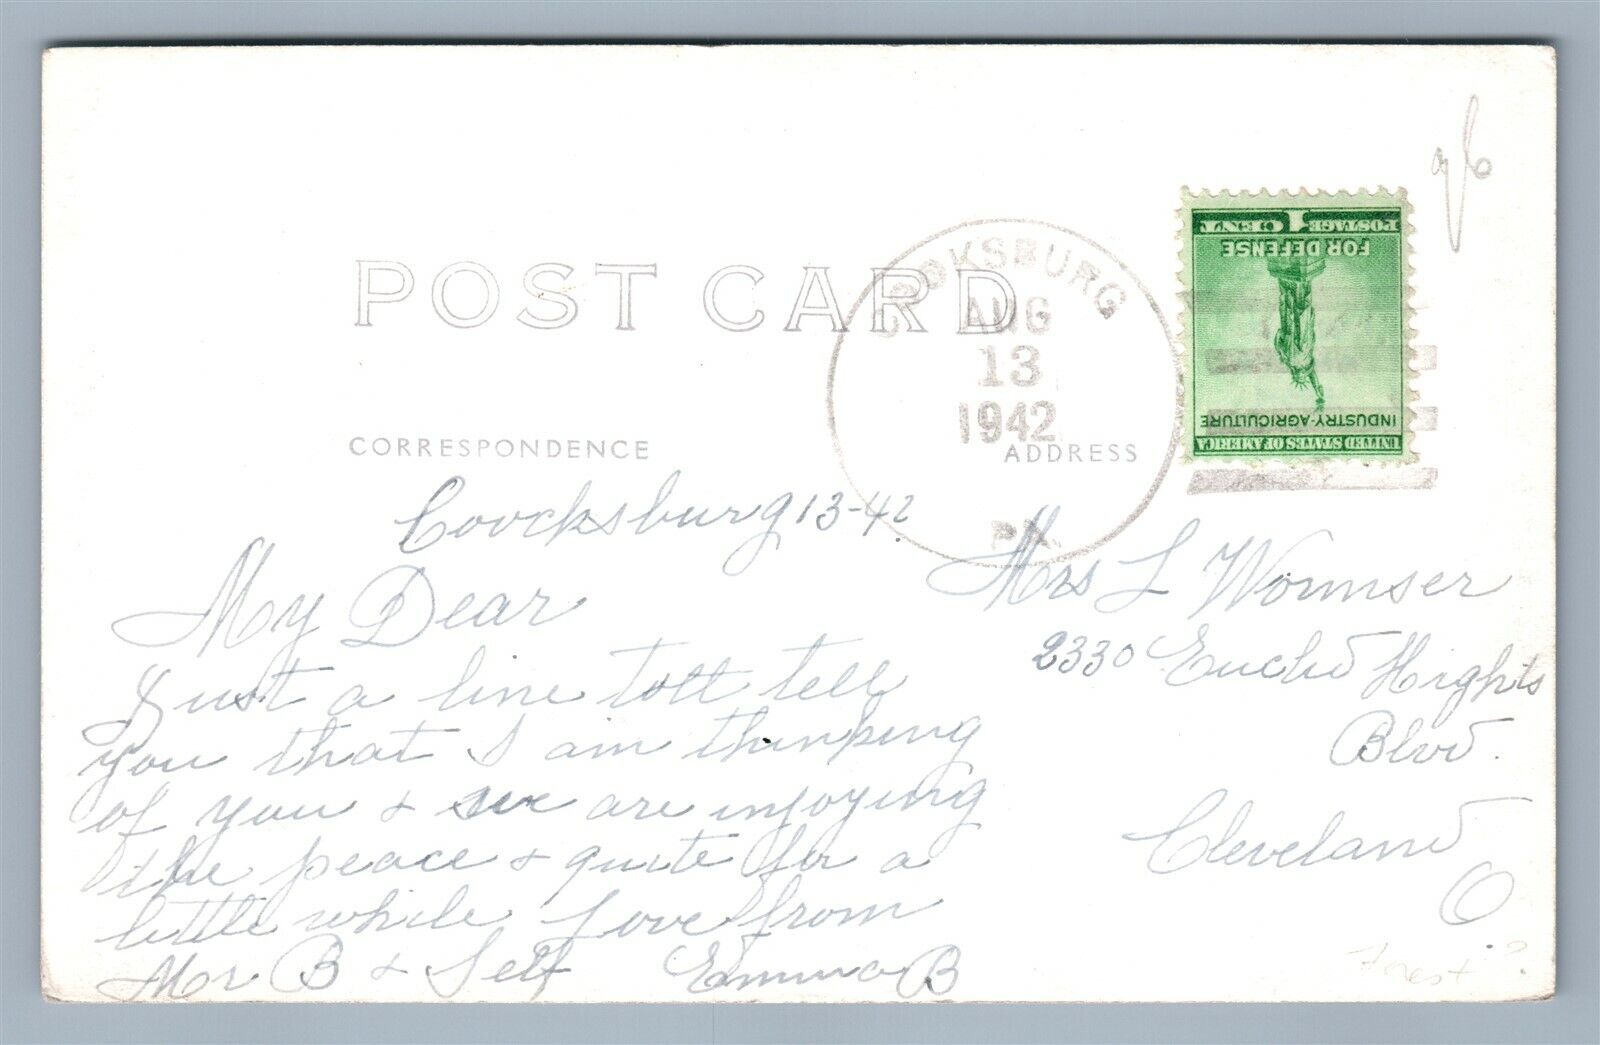 POST CARD
CORRESPONDENCE
ADDRESS
COOKSBURG
AUG
13
1942
PA.
1 CENT
POSTAGE
FOR DEFENSE
INDUSTRY-AGRICULTURE
UNITED STATES OF AMERICA
Coocksburg 13-42
My Dear
Just a line tott tell
you that I am thinking
of you & we are injoying
the peace & quite for a
little while Love from
Mr B & Self Emma B
Mrs L Wormser
2330 Euclid Hights
Blvd.
Cleveland
O
Forest ?